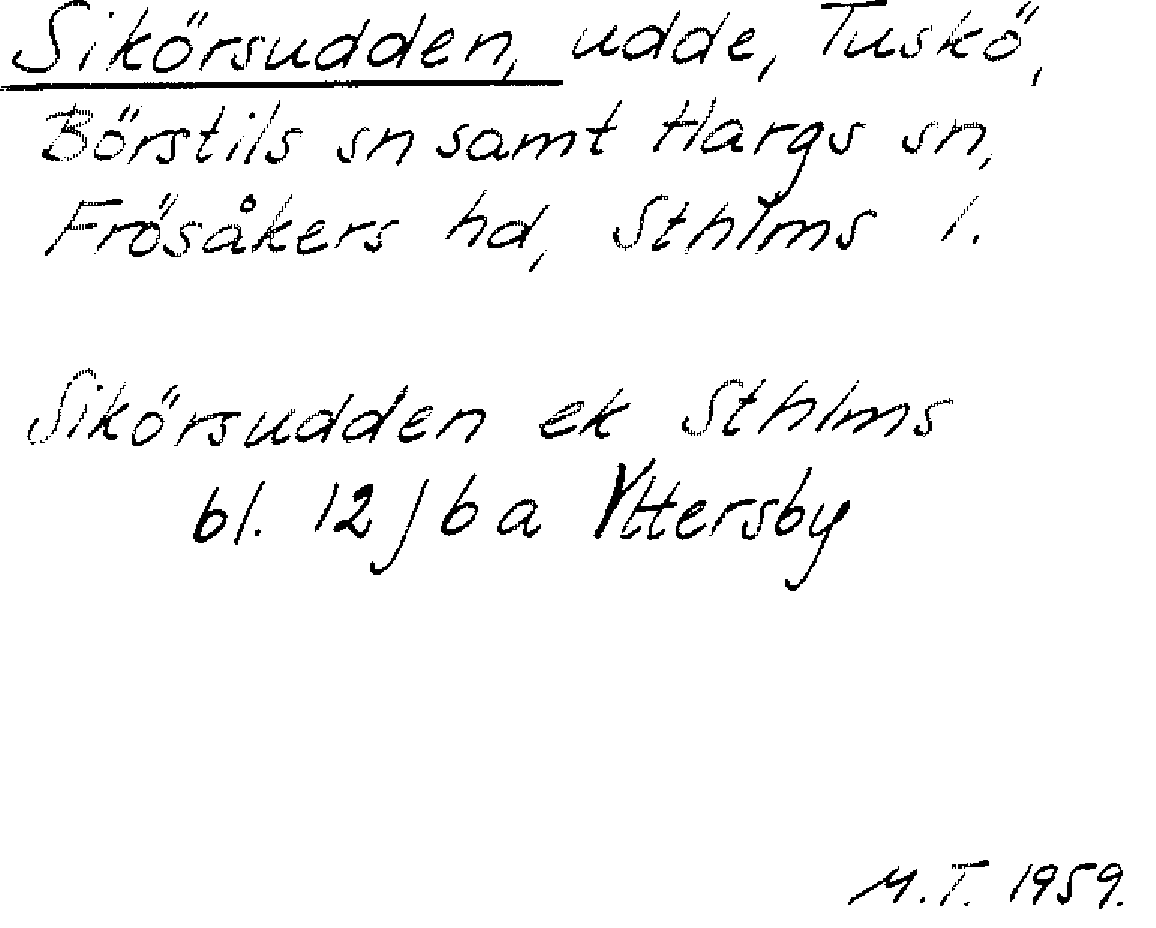 Sikörsudden, udde, Tuskö,
Börstils sn samt Hargs sn,
Frösåkers hd, Sthlms l.
Sikörsudden ek Sthlms
bl. 12 J 6 a Yttersby
M.T. 1959.